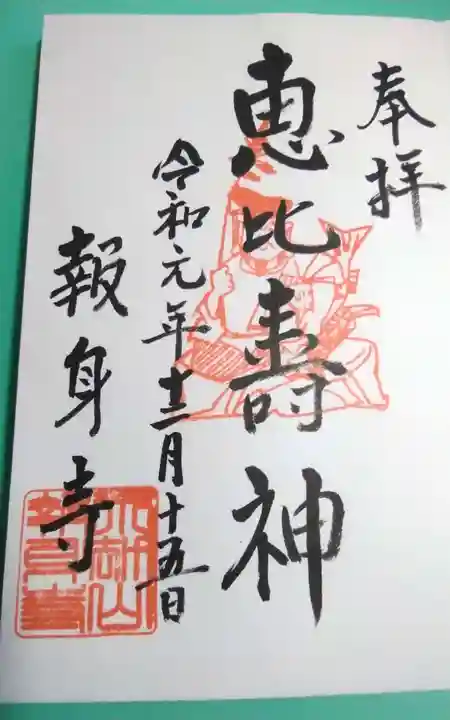 奉拝
恵比壽神
令和元年十二月十五日
報身寺